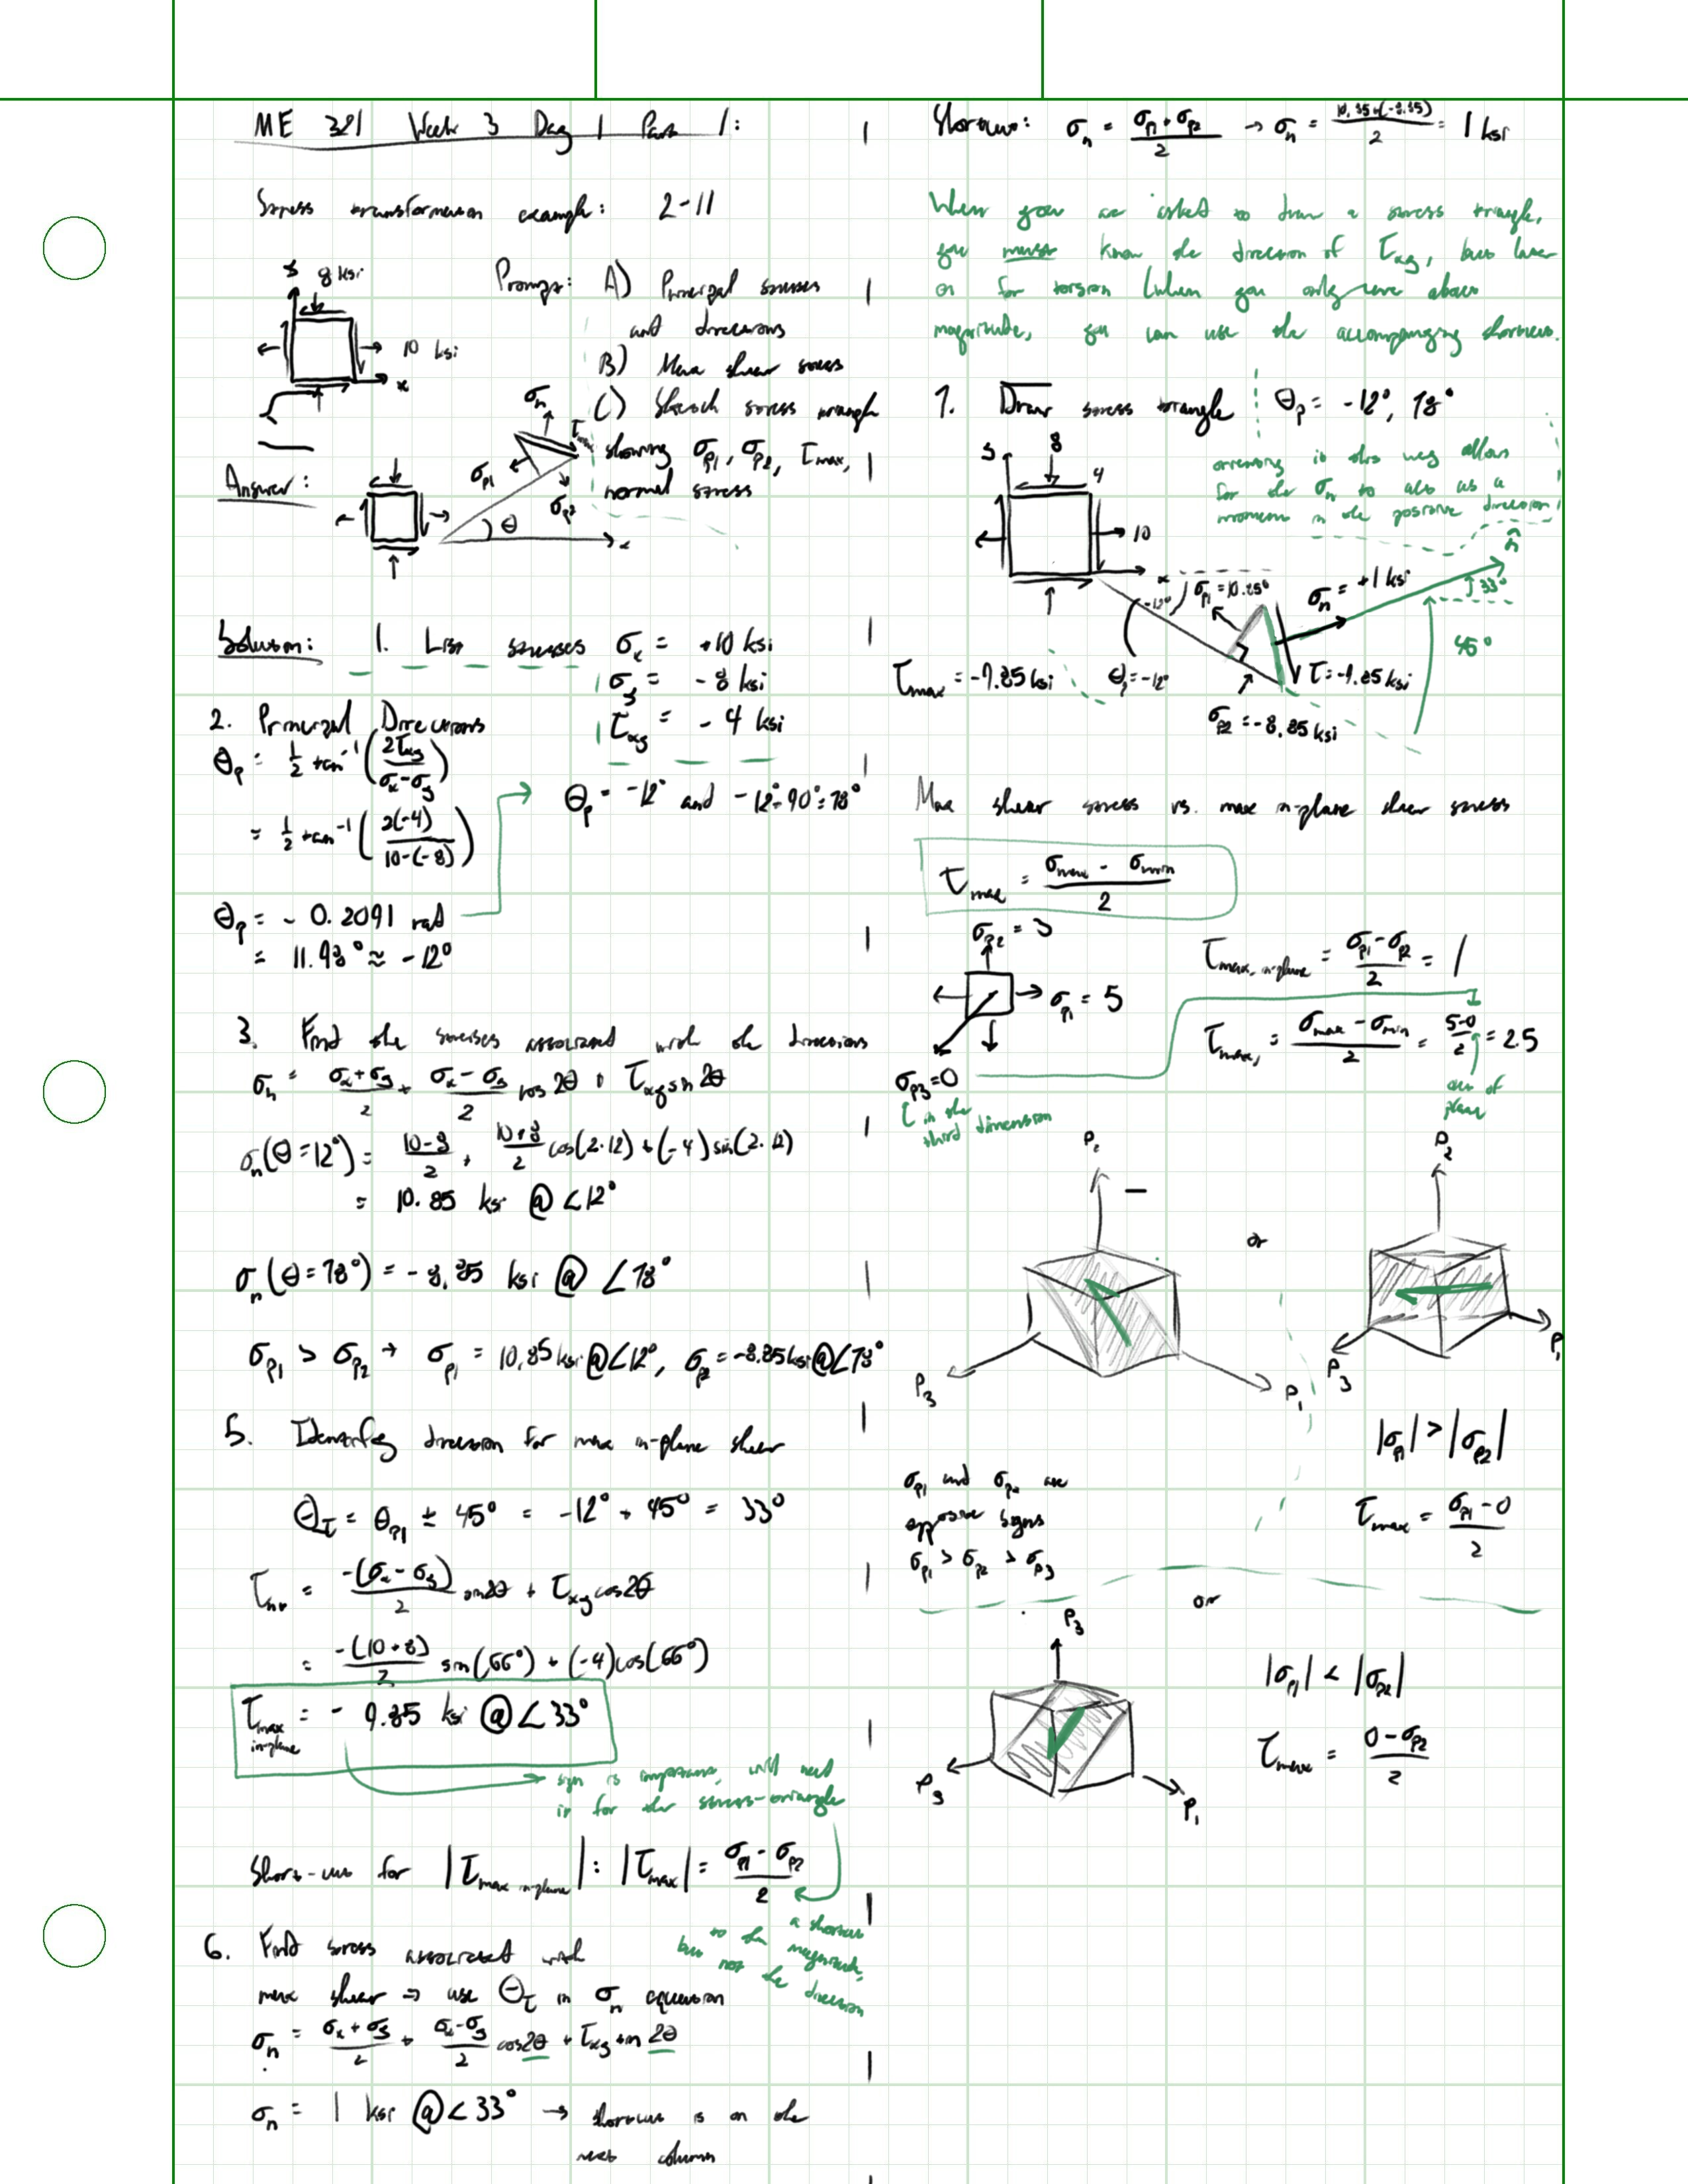 ME 321 Week 3 Day 1 Part 1:
Stress transformation example: 2-11
y 8 ksi
10 ksi
x
Prompt: A) Principal stresses
and directions
B) Max shear stress
C) Sketch stress triangle
showing σp1, σp2, τmax,
normal stress
Answer:
σn
τmax
σp1
σp2
θ
x
Solution: 1. List stresses σx = +10 ksi
σy = - 8 ksi
τxy = - 4 ksi
2. Principal Directions
θp = 1/2 tan⁻¹(2τxy/(σx-σy))
= 1/2 tan⁻¹(2(-4)/(10-(-8)))
θp = - 0.2091 rad
= 11.98° ≈ -12°
θp = -12° and -12+90°=78°
3. Find the stresses associated with the directions
σn = (σx+σy)/2 + (σx-σy)/2 cos2θ + τxy sin2θ
σn(θ=12°) = (10-8)/2 + (10+8)/2 cos(2·12)+(-4)sin(2·12)
= 10.85 ksi @∠12°
σn(θ=78°) = -8.85 ksi @ ∠78°
σp1 > σp2 → σp1 = 10.85 ksi@∠12°, σp2=-8.85ksi@∠78°
5. Identify direction for max in-plane shear
θτ = θp1 ± 45° = -12° + 45° = 33°
τnt = -(σx-σy)/2 sin2θ + τxy cos2θ
= -(10+8)/2 sin(66°) + (-4)cos(66°)
τmax in-plane = - 9.85 ksi @∠33°
sign is important, will need
it for the stress-triangle
Short-cut for |τmax in-plane|: |τmax| = (σp1-σp2)/2
a shortcut
to the magnitude,
but not the direction
6. Find stress associated with
max shear ⇒ use θτ in σn equation
σn = (σx+σy)/2 + (σx-σy)/2 cos2θ + τxy sin 2θ
σn = 1 ksi @∠33° → shortcut is on the
next column
Shortcut: σn = (σp1+σp2)/2 → σn = (10.85+(-8.85))/2 = 1 ksi
When you are asked to draw a stress triangle,
you must know the direction of τxy, but later
on for torsion (when you only care about
magnitude, you can use the accompanying shortcut.
7. Draw stress triangle θp = -12°, 78°
orienting it this way allows
for the σn to also as a
moment in the positive direction
y
8
4
10
x
-12°
σp1=10.85°
σn = +1 ksi
n̂
33°
45°
τmax = -9.85 ksi
θp=-12°
τ=-9.85 ksi
σp2=-8.85 ksi
Max shear stress vs. max in-plane shear stress
τmax = (σmax - σmin)/2
σp2 = 3
σp1 = 5
σp3=0
in the
third dimension
τmax, in-plane = (σp1-σp2)/2 = 1
τmax, = (σmax-σmin)/2 = (5-0)/2 = 2.5
out of
plane
P2
P3
P1
or
P2
P3
P1
σp1 and σp2 are
opposite signs
σp1 > σp2 > σp3
|σp1| > |σp2|
τmax = (σp1-0)/2
or
P3
P3
P1
|σp1| < |σp2|
τmax = (0-σp2)/2